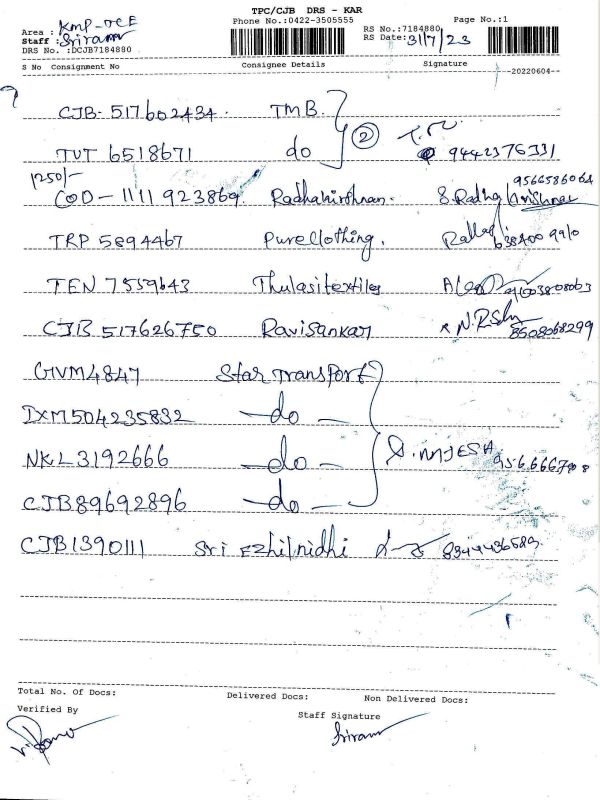 TPC/CJB DRS - KAR
Phone No.:0422-3505555
Page No.:1
Area : KMP-OCE
Staff : Sriram
DRS No. :DCJB7184880
RS No.:7184880
RS Date: 31/7/23
S No Consignment No Consignee Details Signature
20220604
CJB- 517602434. TMB.
TUT 6518671 do 2 9442376331
1250/-
COD - 1111 923869. Radhakirshnan. S. Radha Krishnan 9566586064
TRP 5894467 Pureclothing.
TEN 7559643 Thulasitextiles
CJB 517626750 Ravisankar 8508068299
GVM4847 Star Transport
IXM504235832 -do-
NKL3192666 -do-
CJB89692896 -do-
CJB1390111 Sri Ezhilnidhi 8344436583.
Total No. Of Docs: Delivered Docs: Non Delivered Docs:
Verified By
Staff Signature
Sriram